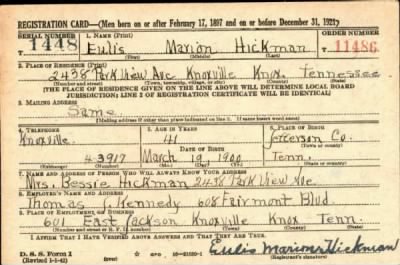 REGISTRATION CARD—(Men born on or after February 17, 1897 and on or before December 31, 1921)
SERIAL NUMBER 1. NAME (Print) ORDER NUMBER
T 1448 Eulis Marion Hickman 11486
(First) (Middle) (Last)
2. PLACE OF RESIDENCE (Print)
2438 Park View Ave Knoxville Knox Tennessee
(Number and street) (Town, township, village, or city) (County) (State)
[THE PLACE OF RESIDENCE GIVEN ON THE LINE ABOVE WILL DETERMINE LOCAL BOARD
JURISDICTION; LINE 2 OF REGISTRATION CERTIFICATE WILL BE IDENTICAL]
3. MAILING ADDRESS
Same
[Mailing address if other than place indicated on line 2. If same insert word same]
4. TELEPHONE 5. AGE IN YEARS 6. PLACE OF BIRTH
Knoxville 41 Jefferson Co.
DATE OF BIRTH (Town or county)
4-3917 March 19, 1900 Tenn.
(Exchange) (Number) (Mo.) (Day) (Yr.) (State or country)
7. NAME AND ADDRESS OF PERSON WHO WILL ALWAYS KNOW YOUR ADDRESS
Mrs. Bessie Hickman 2438 Park View Ave.
8. EMPLOYER'S NAME AND ADDRESS
Thomas J. Kennedy 608 Fairmont Blvd.
9. PLACE OF EMPLOYMENT OR BUSINESS
601 East Jackson Knoxville Knox Tenn.
(Number and street or R. F. D. number) (Town) (County) (State)
I AFFIRM THAT I HAVE VERIFIED ABOVE ANSWERS AND THAT THEY ARE TRUE.
D. S. S. Form 1
(Revised 1-1-42) GPO 16-21630-1 Eulis Marion Hickman
(Registrant's signature)